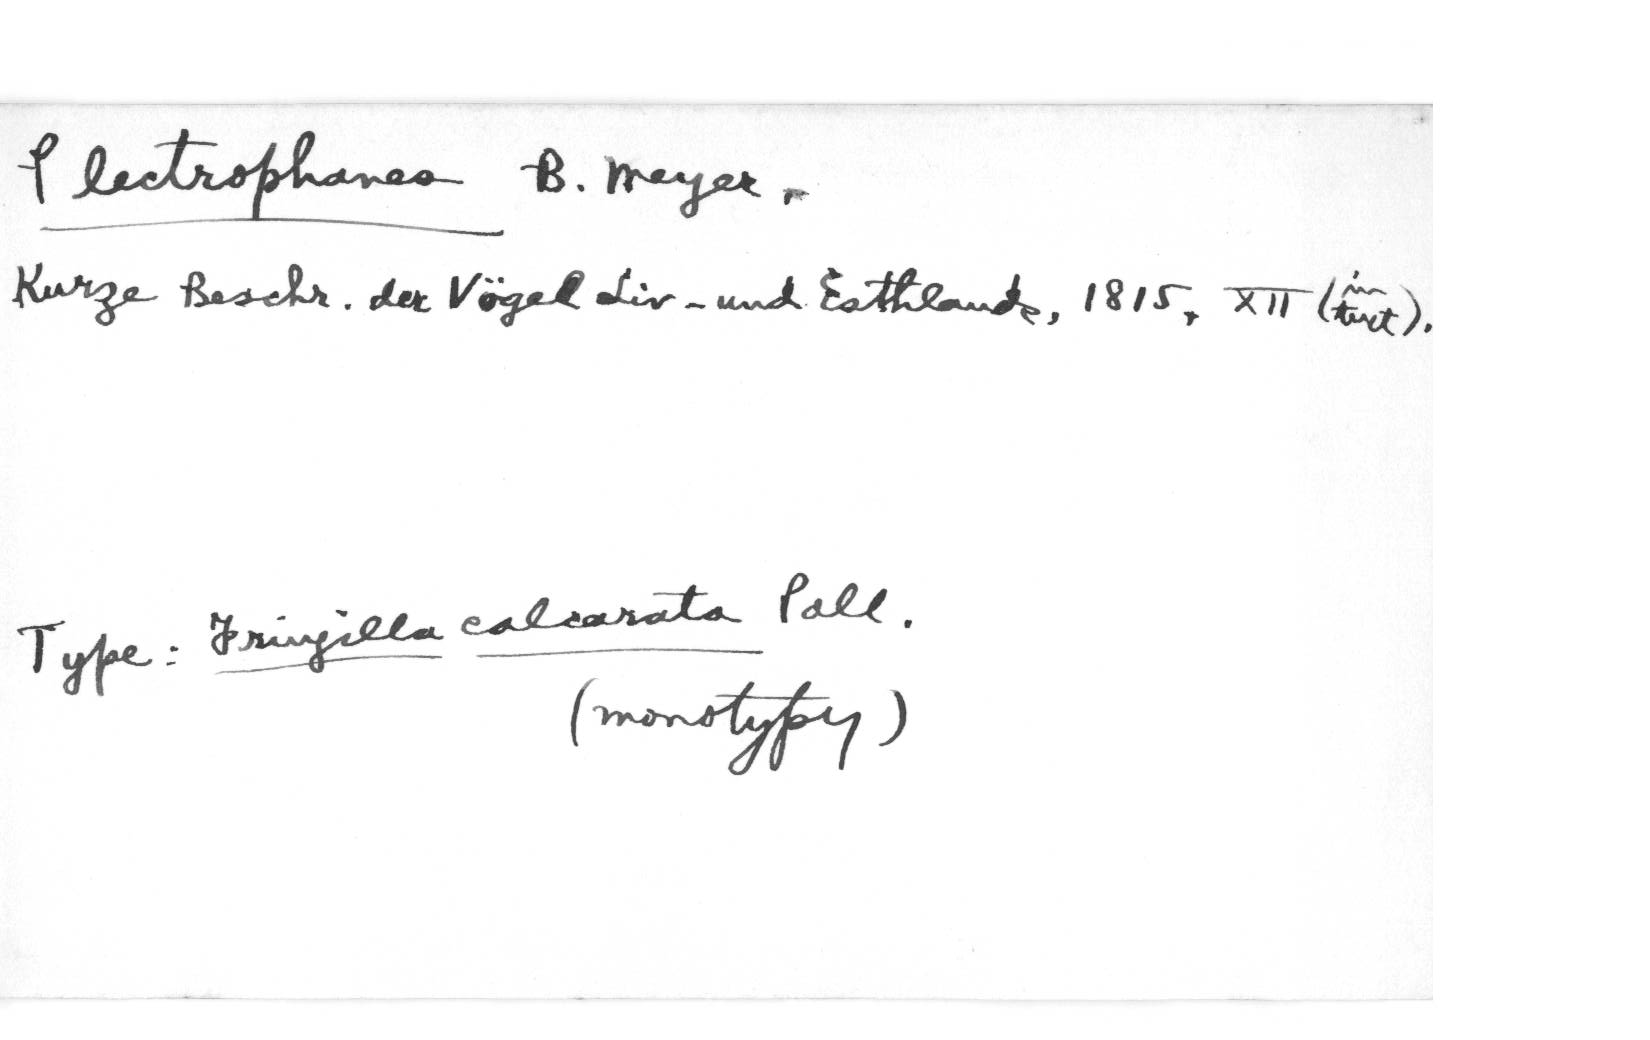 Plectrophanes B. Meyer.
Kurze Beschr. der Vögel Liv-und Esthlands, 1815, XII (in text).
Type: Fringilla calcarata Pall.
(monotypy)